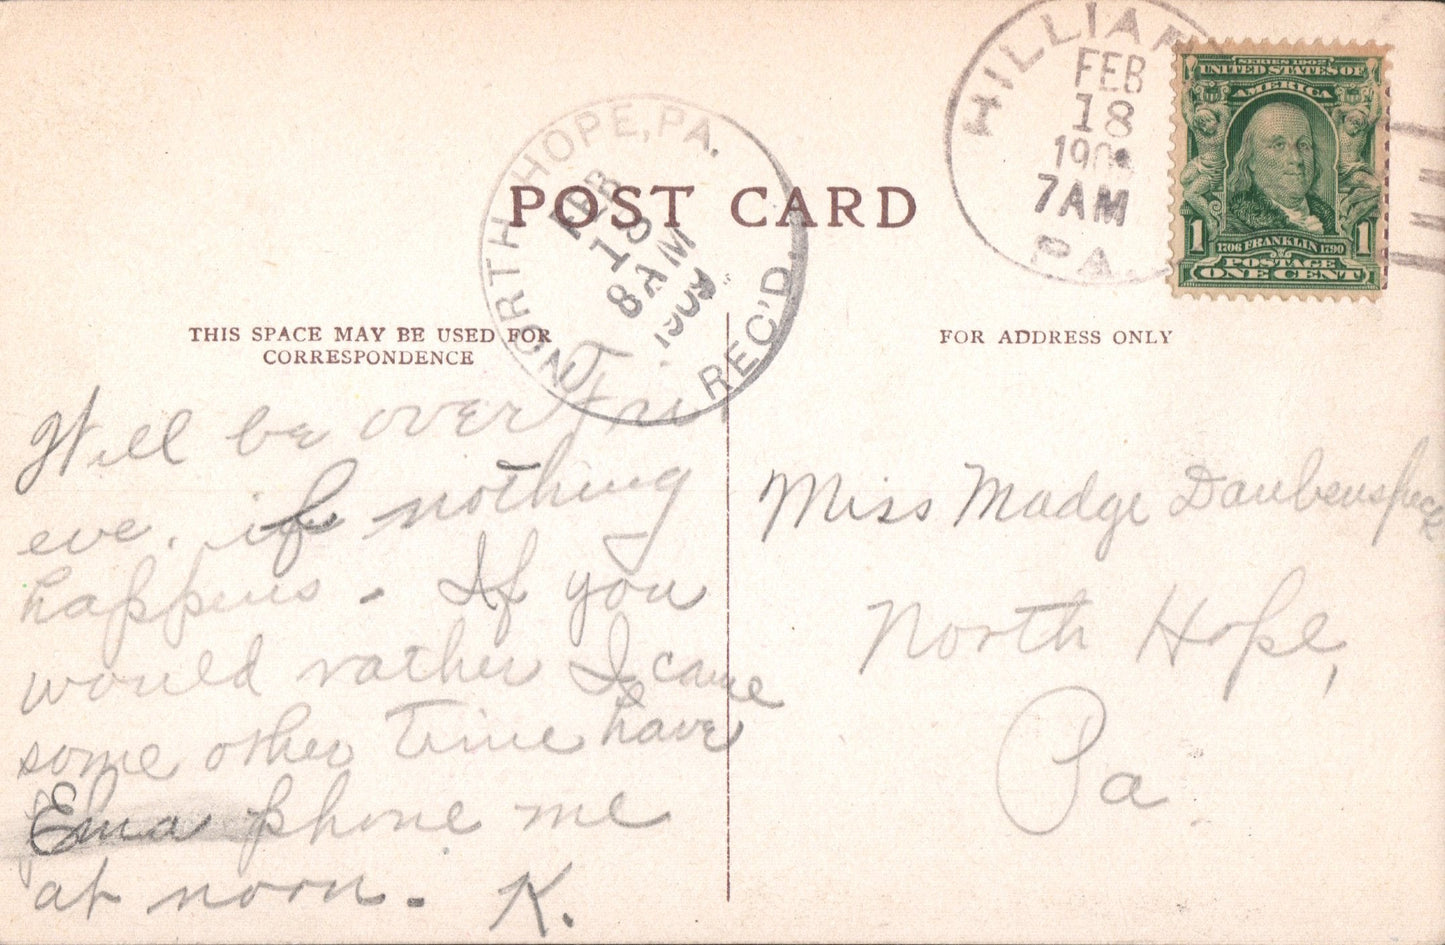 HILLIAR
FEB
18
7AM
PA.
SERIES 1902
UNITED STATES OF
AMERICA
1 1706 FRANKLIN 1790 1
POSTAGE
ONE CENT
NORTH HOPE, PA.
FEB
8AM
1909
REC'D.
POST CARD
THIS SPACE MAY BE USED FOR
CORRESPONDENCE
FOR ADDRESS ONLY
T.
Will be over Fri
eve. if nothing
happens. If you
would rather I came
some other time have
Ema phone me
at noon. K.
Miss Madge Daubenspeck
North Hope,
Pa